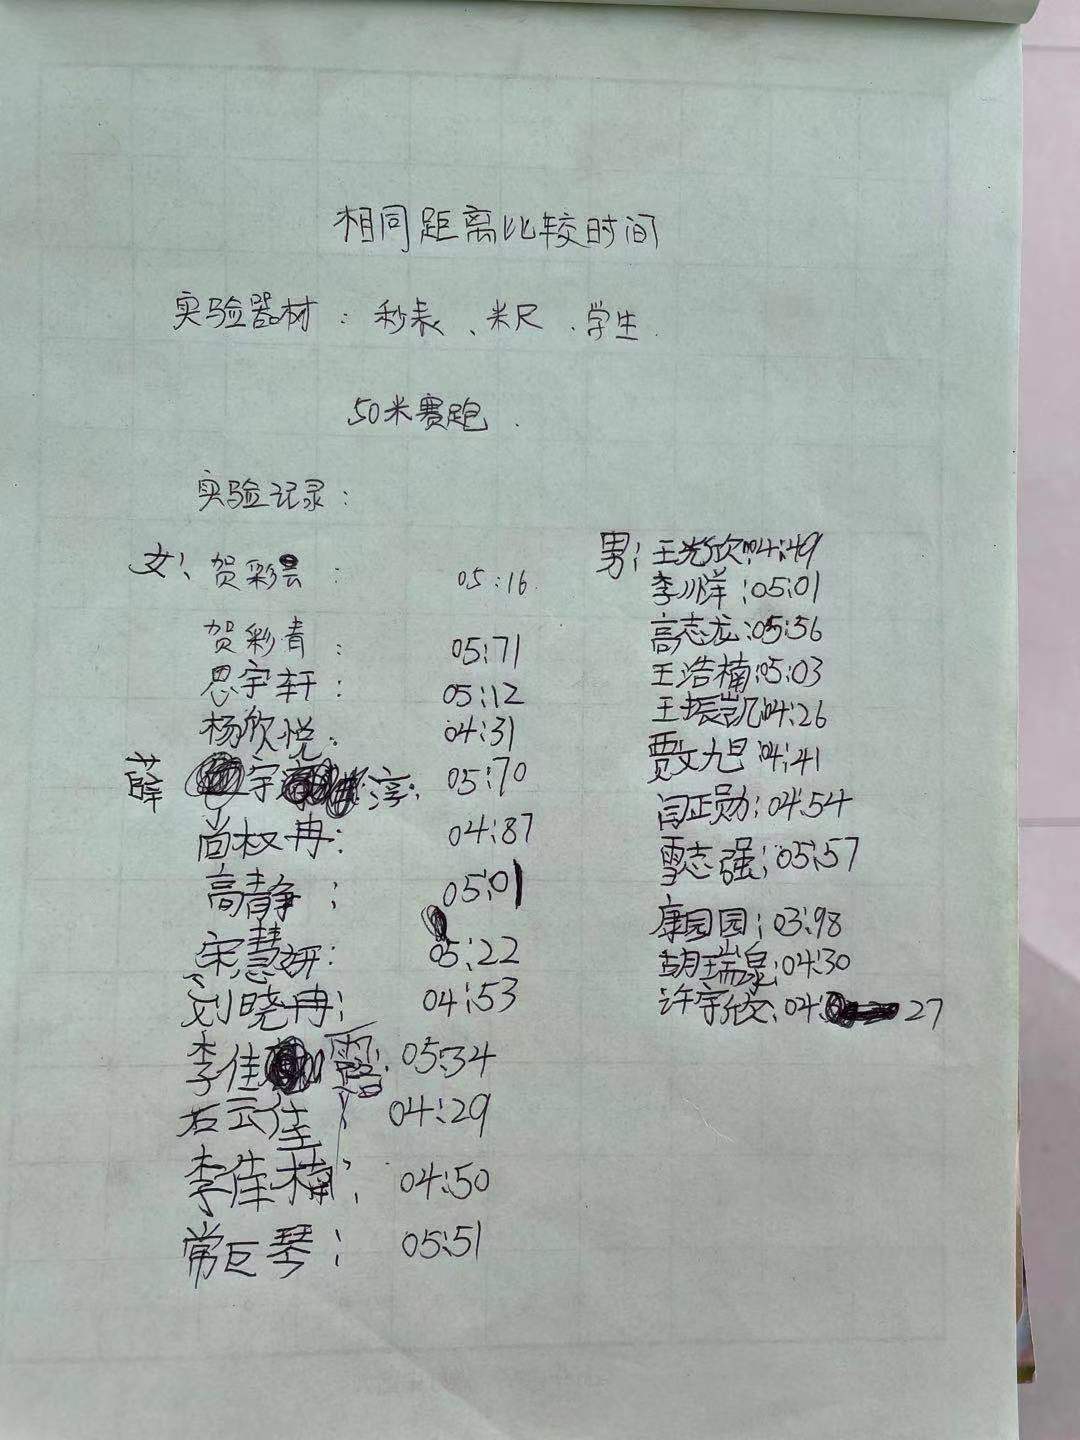 相同距离比较时间
实验器材：秒表、米尺、学生.
50米赛跑.
实验记录：
女：贺彩云：05:16.
贺彩青：05:71
思宇轩：05:12
杨欣悦：04:31
薛宇淳：05:70
尚权冉：04:87
高静：05:01
宋慧妍：05:22
刘晓冉：04:53
李佳露：05:34
石云佳：04:29
李佳楠：04:50
常巨琴：05:51
男：王光欣：04:49
李洋：05:01
高志龙：05:56
王浩楠：05:03
王振凯：04:26
贾文旭：04:41
闫正勋：04:54
雪志强：05:57
康园园：03:98
胡瑞泉：04:30
许宇欣：04:27